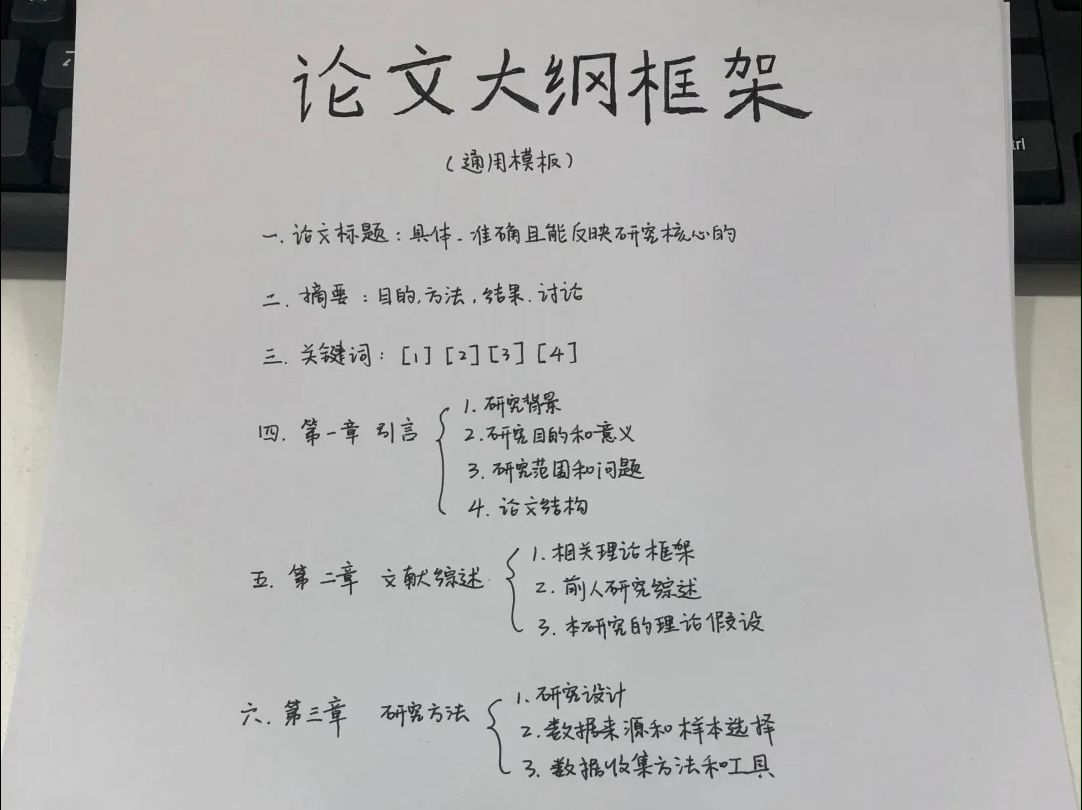 论文大纲框架
（通用模板）
一. 论文标题：具体、准确且能反映研究核心的
二. 摘要：目的, 方法, 结果, 讨论
三. 关键词：[1] [2] [3] [4]
四. 第一章 引言
1. 研究背景
2. 研究目的和意义
3. 研究范围和问题
4. 论文结构
五. 第二章 文献综述
1. 相关理论框架
2. 前人研究综述
3. 本研究的理论假设
六. 第三章 研究方法
1. 研究设计
2. 数据来源和样本选择
3. 数据收集方法和工具